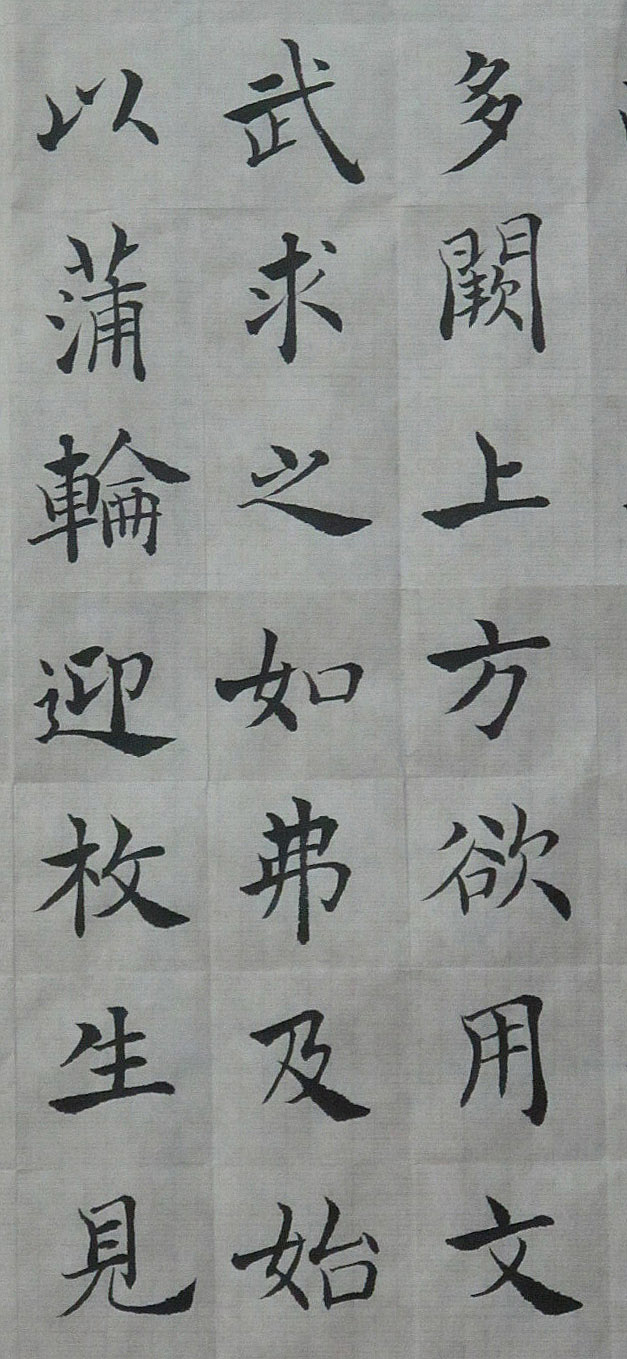 多闕上方欲用文
武求之如弗及始
以蒲輪迎枚生見